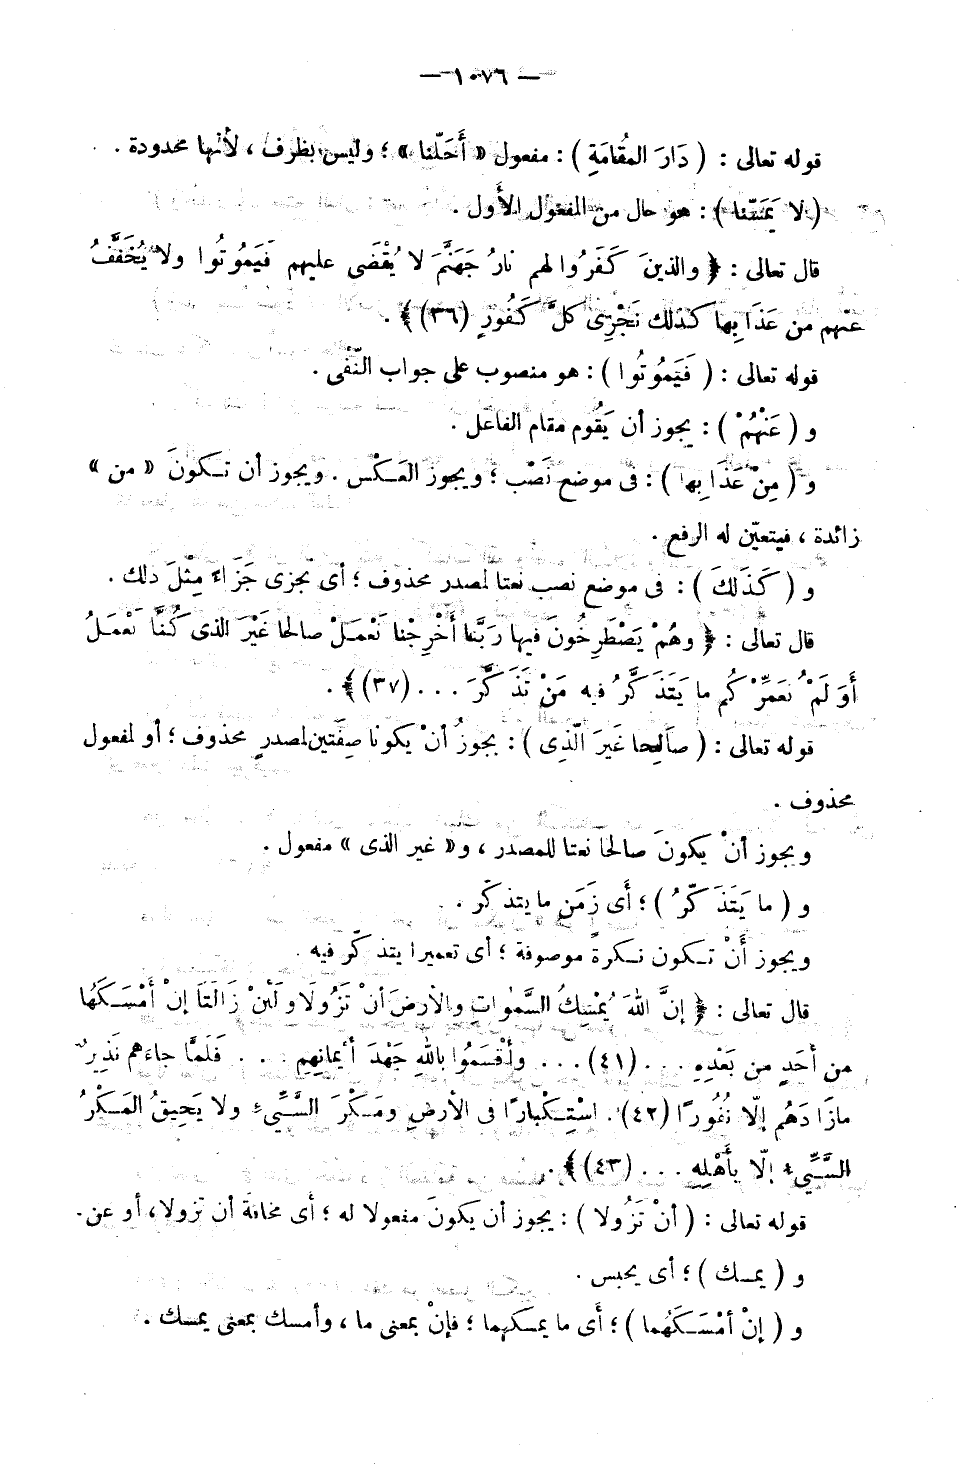 — ١٠٧٦ —
قوله تعالى : ( دَارَ المُقَامَةِ ) : مفعول « أَحَلّنا » ؛ وليس بظرف ، لأنها محدودة .
( لا يَمَسّنا ) : هو حال من المفعول الأول .
قال تعالى : ﴿ والذينَ كَفَرُوا لهم نارُ جَهَنَّمَ لا يُقْضَى عليهم فَيَمُوتُوا ولا يُخَفَّفُ
عنهم من عَذَابِها كذلك نَجْزِى كلَّ كَفُورٍ (٣٦) ﴾ .
قوله تعالى : ( فَيَمُوتُوا ) : هو منصوب على جواب النّفْى .
و ( عَنْهُمْ ) : يجوز أن يَقُوم مقام الفاعل .
و ( مِنْ عَذَابِها ) : فى موضع نَصْب ؛ ويجوز العَكْس . ويجوز أن تكونَ « من »
زائدة ، فيتعيّن له الرفع .
و ( كَذَلكَ ) : فى موضع نصب نعتا لمصدر محذوف ؛ أى نجزى جَزَاءً مِثْلَ ذلك .
قال تعالى : ﴿ وهُمْ يَصْطَرِخُونَ فيها رَبَّنا أَخْرِجْنا نَعْمَلْ صالحا غَيْرَ الذى كُنَّا نَعْمَلُ
أَوَ لَمْ نُعَمِّرْكُم ما يَتَذَكَّرُ فيه مَنْ تَذَكَّرَ ... (٣٧) ﴾ .
قوله تعالى : ( صَالِحا غَيرَ الّذِى ) : يجوزُ أنْ يكونا صِفَتين لمصدرٍ محذوف ؛ أو لمفعول
محذوف .
ويجوز أنْ يكونَ صالحا نعتا للمصدر ، و« غير الذى » مفعول .
و ( ما يَتَذَكّرُ ) ؛ أَى زَمَن ما يتذكّر .
ويجوز أَنْ تكون نكرةً موصوفة ؛ أى تعميرا يتذكّر فيه .
قال تعالى : ﴿ إنَّ اللهَ يُمْسِكُ السَّمٰواتِ والأرضَ أنْ تَزُولَا ولَئِنْ زَالَتَا إنْ أَمْسَكَهُما
من أحَدٍ من بَعْدِهِ ... (٤١) ... وأَقْسَمُوا باللهِ جَهْدَ أيْمانِهِم ... فَلَمَّا جاءهم نَذِيرٌ
مازَادَهُم إلّا نُفُورًا (٤٢) . اسْتِكْبارًا فى الأرضِ ومَكْرَ السَّيِّىءِ ولا يَحِيقُ المَكْرُ
السَّيِّىءُ إلّا بأَهْلِهِ ... (٤٣) ﴾ .
قوله تعالى : ( أنْ تَزُولا ) : يجوز أن يكونَ مفعولا له ؛ أى مخافةَ أن تزولا ، أو عن .
و ( يمسك ) ؛ أى يحبس .
و ( إنْ أَمْسَكَهُما ) ؛ أَى ما يمسكهما ؛ فإنْ بمعنى ما ، وأمسك بمعنى يمسك .